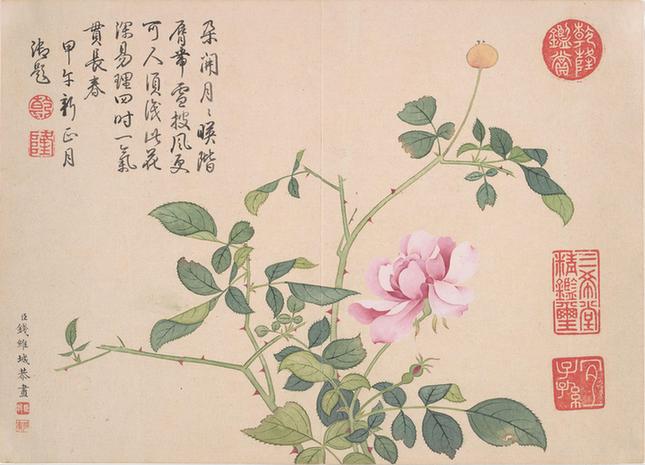 朵開月〻暎階
脣帶雪披風更
可人須識此花
深易理四時一氣
貫長春
甲午新正月
御題
乾
隆
臣錢維城恭畫
乾隆鑑賞
三希堂精鑑璽
宜子孫